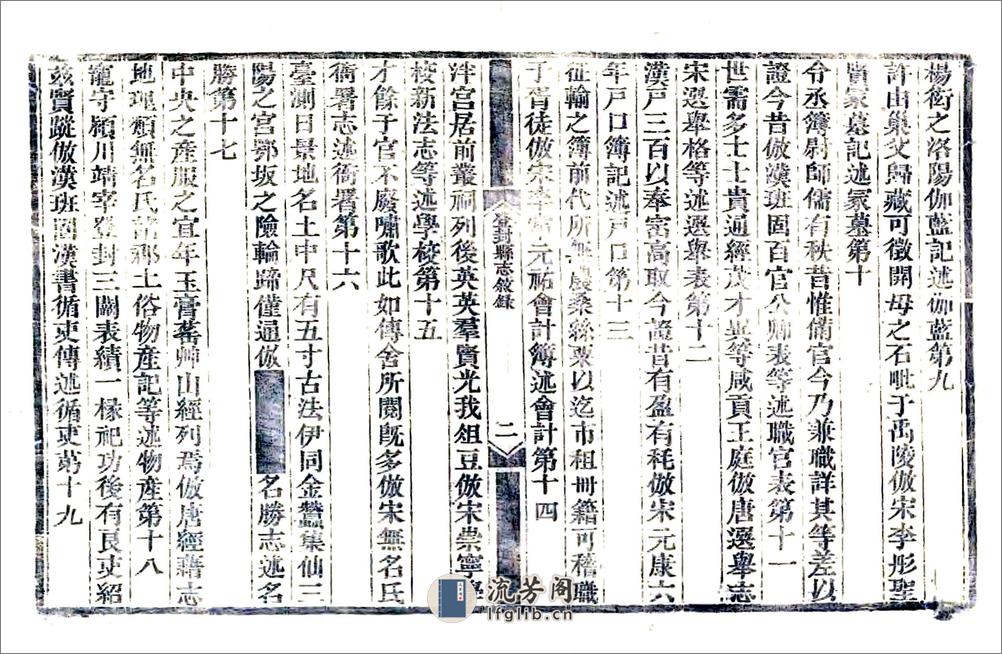 楊衒之洛陽伽藍記述伽藍第九
許由巢父歸藏可徵開母之石毗于禹陵倣宋李彤聖
賢冢墓記述冢墓第十
令丞簿尉師儒有秩昔惟備官今乃兼職詳其等差以
證今昔倣漢班固百官公卿表等述職官表第十一
世需多士士貴通經茂才異等咸貢王庭倣唐選舉志
宋選舉格等述選舉表第十二
漢戸三百以奉密高取今證昔有盈有耗倣宋元康六
年戸口簿記述戸口第十三
征輸之簿前代所無農桑絲粟以迄市租冊籍可稽職
于胥徒倣宋李常元祐會計簿述會計第十四
登封縣志敘錄
二
泮宮居前叢祠列後英英羣賢光我俎豆倣宋崇寧學
校新法志等述學校第十五
才餘于官不廢嘯歌此如傳舍所閱旣多倣宋無名氏
衙署志述衙署第十六
臺測日景地名土中尺有五寸古法伊同金壺集仙三
陽之宮鄂坂之險輪蹄僅通倣
名勝志述名
勝第十七
中央之產服之宜年玉膏蕃艸山經列焉倣唐經籍志
地理類無名氏諸郡土俗物產記等述物產第十八
寵守潁川靖宰登封三闕表績一椽祀功後有良吏紹
茲賢蹤倣漢班固漢書循吏傳述循吏第十九
流芳阁
lfglib.cn